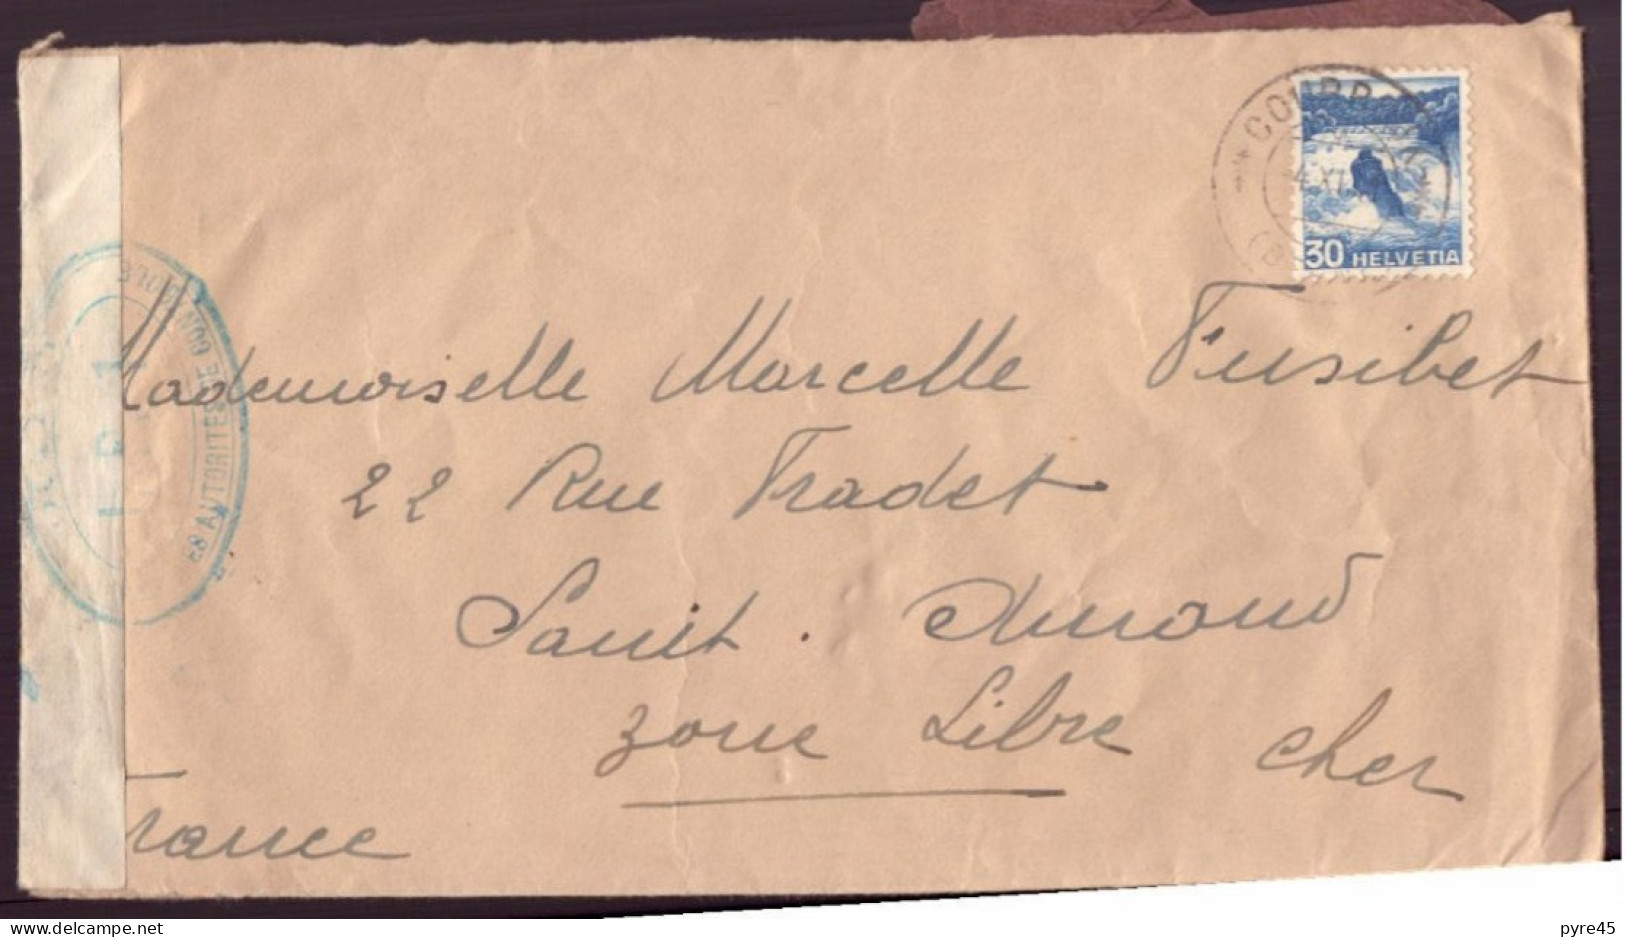 30 HELVETIA
4 XI
AUTORITES DE CONTROLE
Mademoiselle Marcelle Fusibet
22 Rue Fradet
Saint. Amand
zone Libre Cher
France
delcampe.net
pyre45